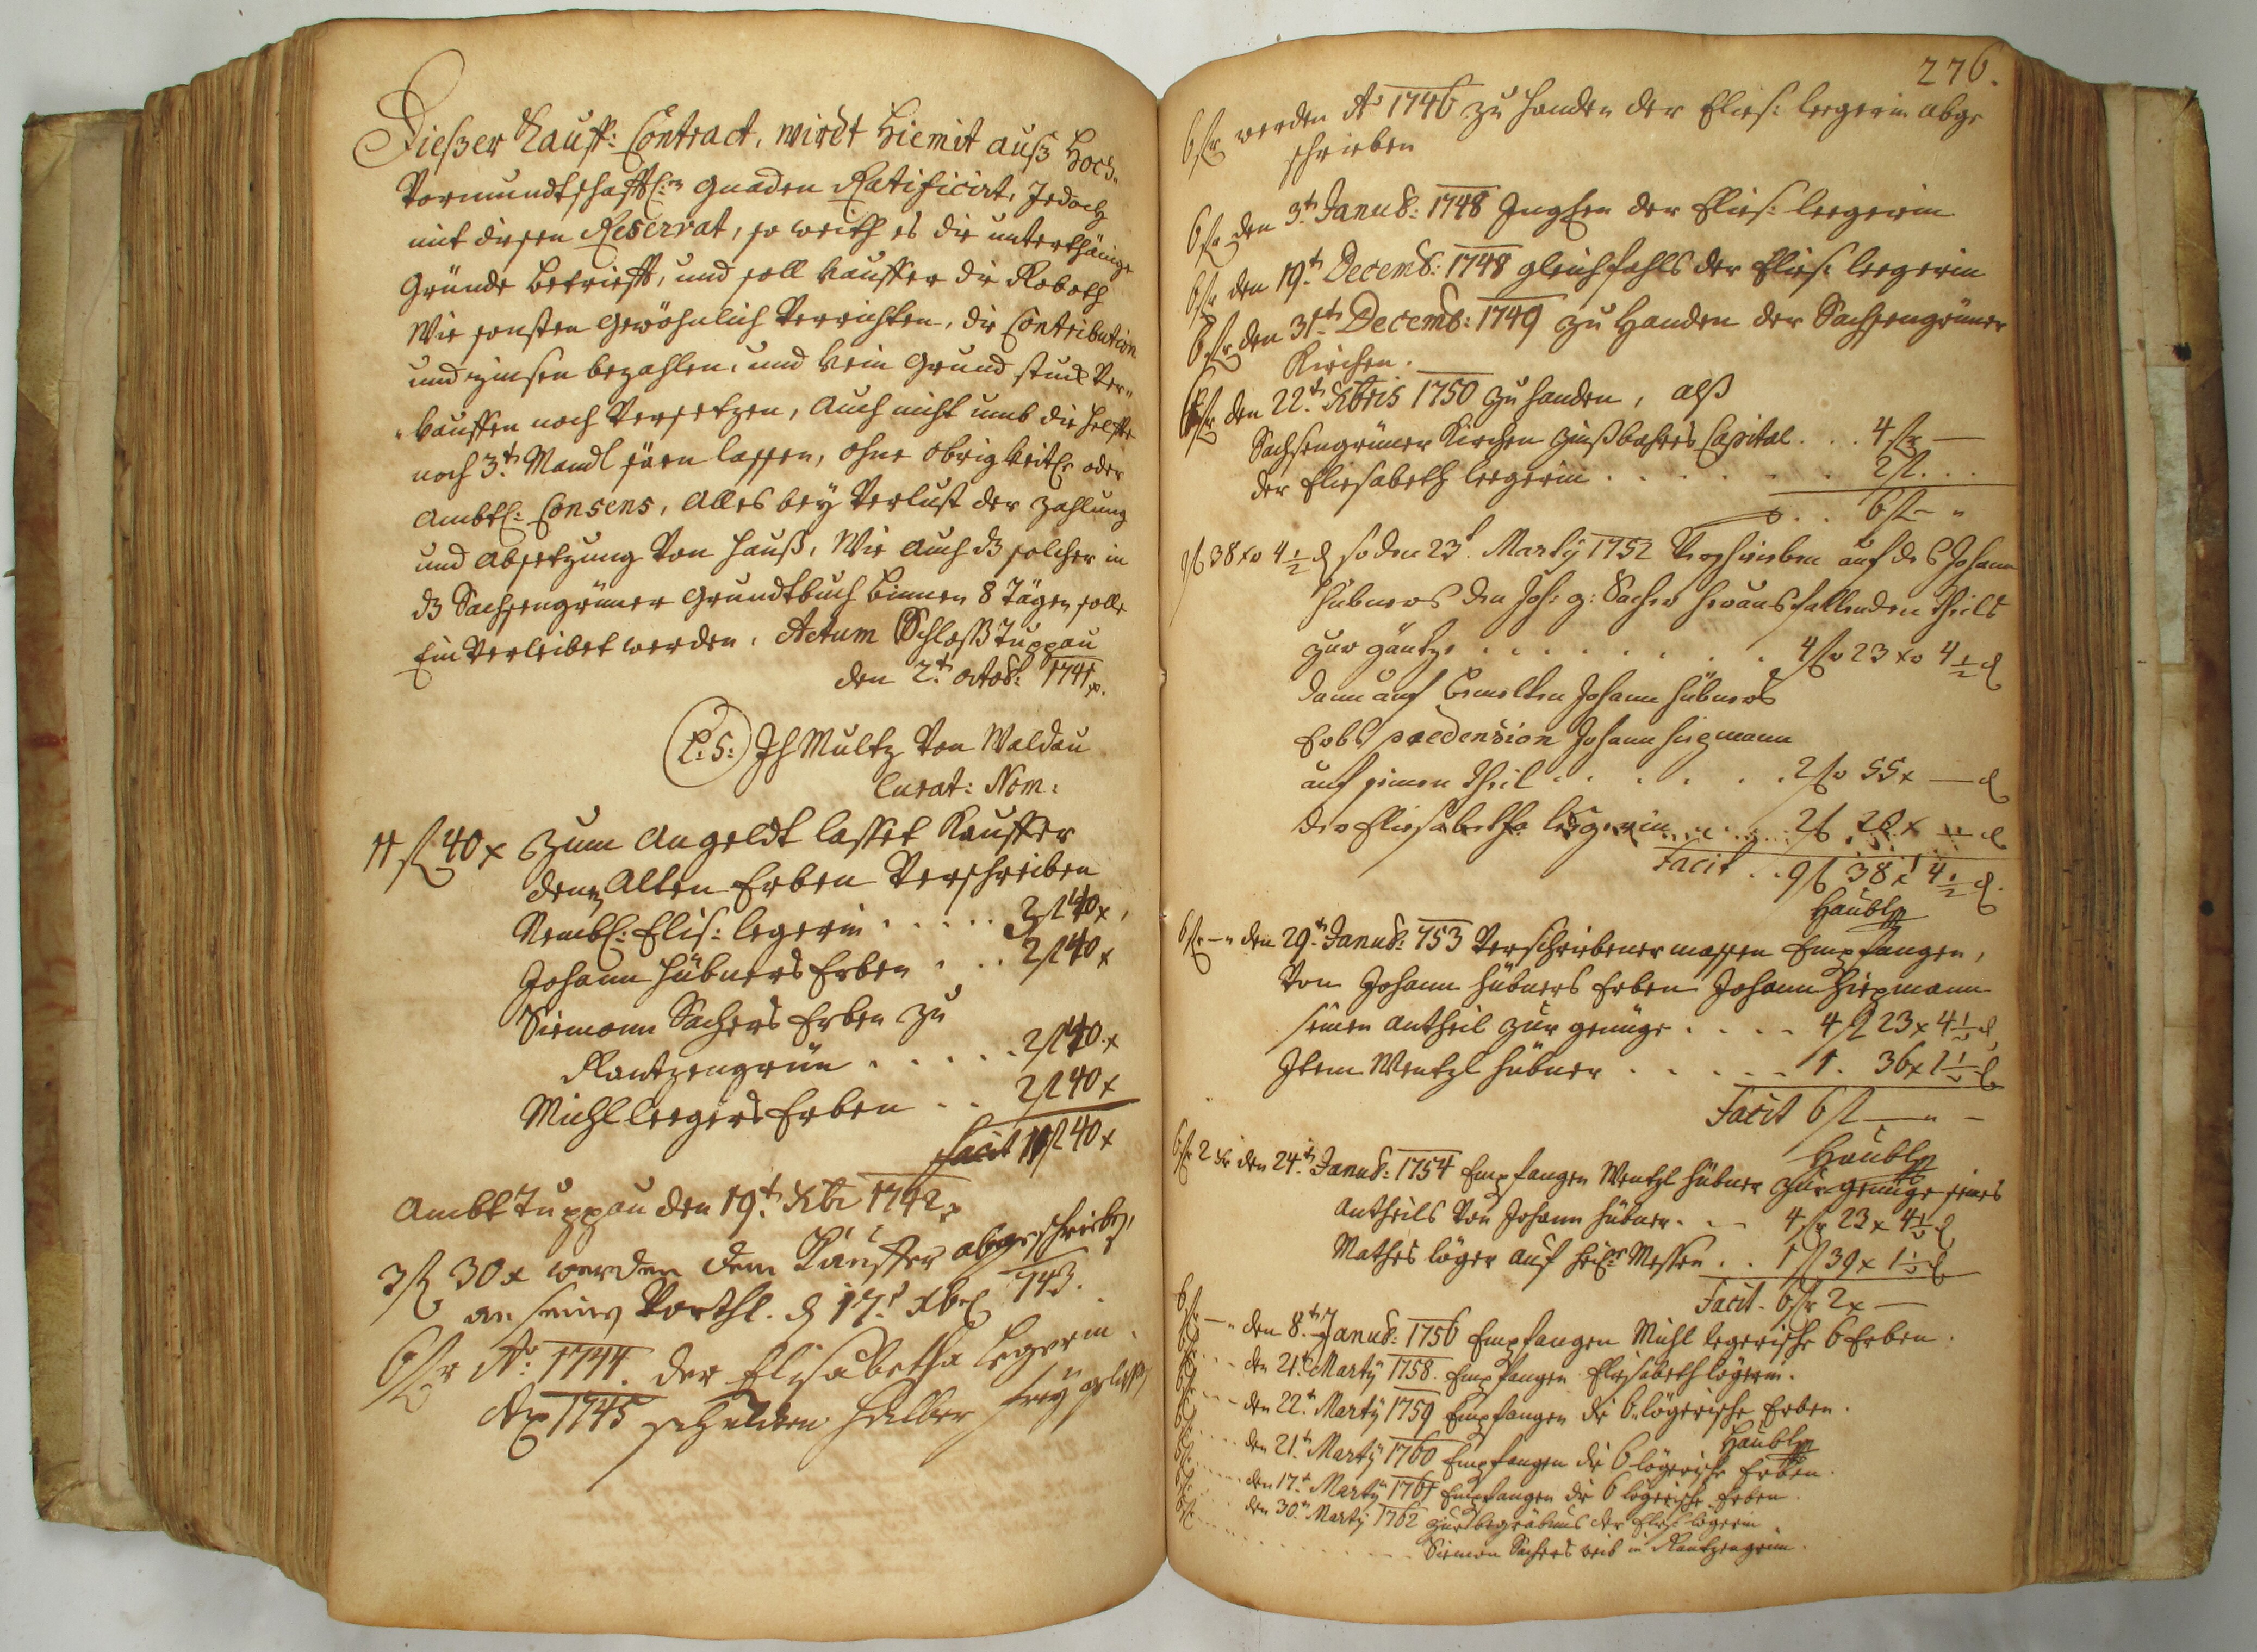 Dießer Kauff: Contract, wirdt Hiemit auß Hoch„
Vormundtschafftl:n Gnaden Ratificirt, Jedoch
mit disen Reservat, so weith es die unterthänige
Gründe betrifft, und soll Kauffer die Roboth
Wie sonsten Gewöhnlich Verrichten, die Contribution
und zinsen bezahlen, und kein Grund stuck Ver„
„kauffen noch Versetzen, Auch nicht umb die Helffte
noch 3t Mandl säen lassen, ohne obrigkeitl: oder
Ambtl: Consens, Alles bey Verlust der Zahlung
und Absetzung Von Hauß, Wie auch dz solcher in
dz Sachsengrüner Grundtbuch binnen 8 Tägen solle
Ein Verleibet werden. Actum Schloß Tuppau
den 2t Octob: 1741
(L:S:) Jh Multz Von Waldau
Curat: Nom:
11 fl 40 x Zum Angeldt lasset Kauffer
denen Alten Erben Verschreiben
Nembl: Elis: legerin . . . . . 3 fl 40 x
Johann Hübners Erben . . . 2 fl 40 x
Siemonn Sachers Erben zu
Rantzengrün . . . . . 2 fl 40 x
Michl leegers Erben . . 2 fl 40 x
facit 11 fl 40 x
Ambt Tuppau den 19t Xbr 1742
3 fl 30 x werden dem Käuffer abgeschrieben
an seinen Vorthl. d 17t Xbr 743.
6 fl Ao: 1744. der Elisabetha Legerin
1745
276.
6 fl werden Ao 1746 zu Handen der Elis: leegerin abge
schrieben
6 fl den 3t Janu8: 1748 Jngl:en der Elies: leegerin
6 fl den 19t Decemb: 1748 gleichfahls der Elies: leegerin
6 fl den 31t Decemb: 1749 zu Handen der Sachsengrüner
Kirchen.
6 fl den 22t Xbris 1750 zu Handen, alß
Sachsengrüner Kirchen zinßbahres Capital . . . 4 fl —
der Eliesabeth leegerin . . . . . . . 2 fl . . .
6 fl — „
9 fl 38 xr 4 1/2 d so den 23t Marty 1752 Verschrieben auf des Johann
Hübners den Joh: g: Sacher herausfallenden theils
zur gäntze . . . . . . . . . 4 fl 23 xr 4 1/2 d
dann auf bemelten Johann Hübners
Erbs praedension Johann Siegmann
auf seinen theil . . . . . . 2 fl 55 x — d
der Eliesabetha legerin . . . . . 2 fl 20 x — d
Facit . . 9 fl 38 x 4 1/2 d.
Häubl
6 fl — „ den 29t Janu8: 753 Verschriebener massen Empfangen,
Von Johann Hübners Erben Johann Siegmann
seinen antheil zur genüge . . . . 4 fl 23 x 4 1/2 d
Item Wentzl Hübner . . . . . . 1. 36 x 1 1/2 d
Facit 6 fl — „ —
Häubl
6 fl 2 xr den 24t Janu8: 1754 Empfangen Wentzl Hübner zur genüge seines
Antheils Von Johann Hübner . . — 4 fl 23 x 4 1/2 d
Mathes löger auf heil: Messen . . 1 fl 39 x 1 1/2 d
Facit . 6 fl 2 x —
6 fl — „ den 8t Janu8: 1756 Empfangen Michl legerische 6 Erben.
. . . . den 21t Marty 1758. Empfangen Elisabeth lögerin.
. . . . den 22t Marty 1759 Empfangen die 6 lögerische Erben.
Häubl
. . . . den 21t Marty 1760 Empfangen die 6 lögerische Erben.
. . . . den 17t Marty 1761 Empfangen die 6 legerische Erben.
. . . . den 30t Marty 1762 zur begräbnus der Elis: lögerin
Siemon Sachers weib in Rantzengrün.